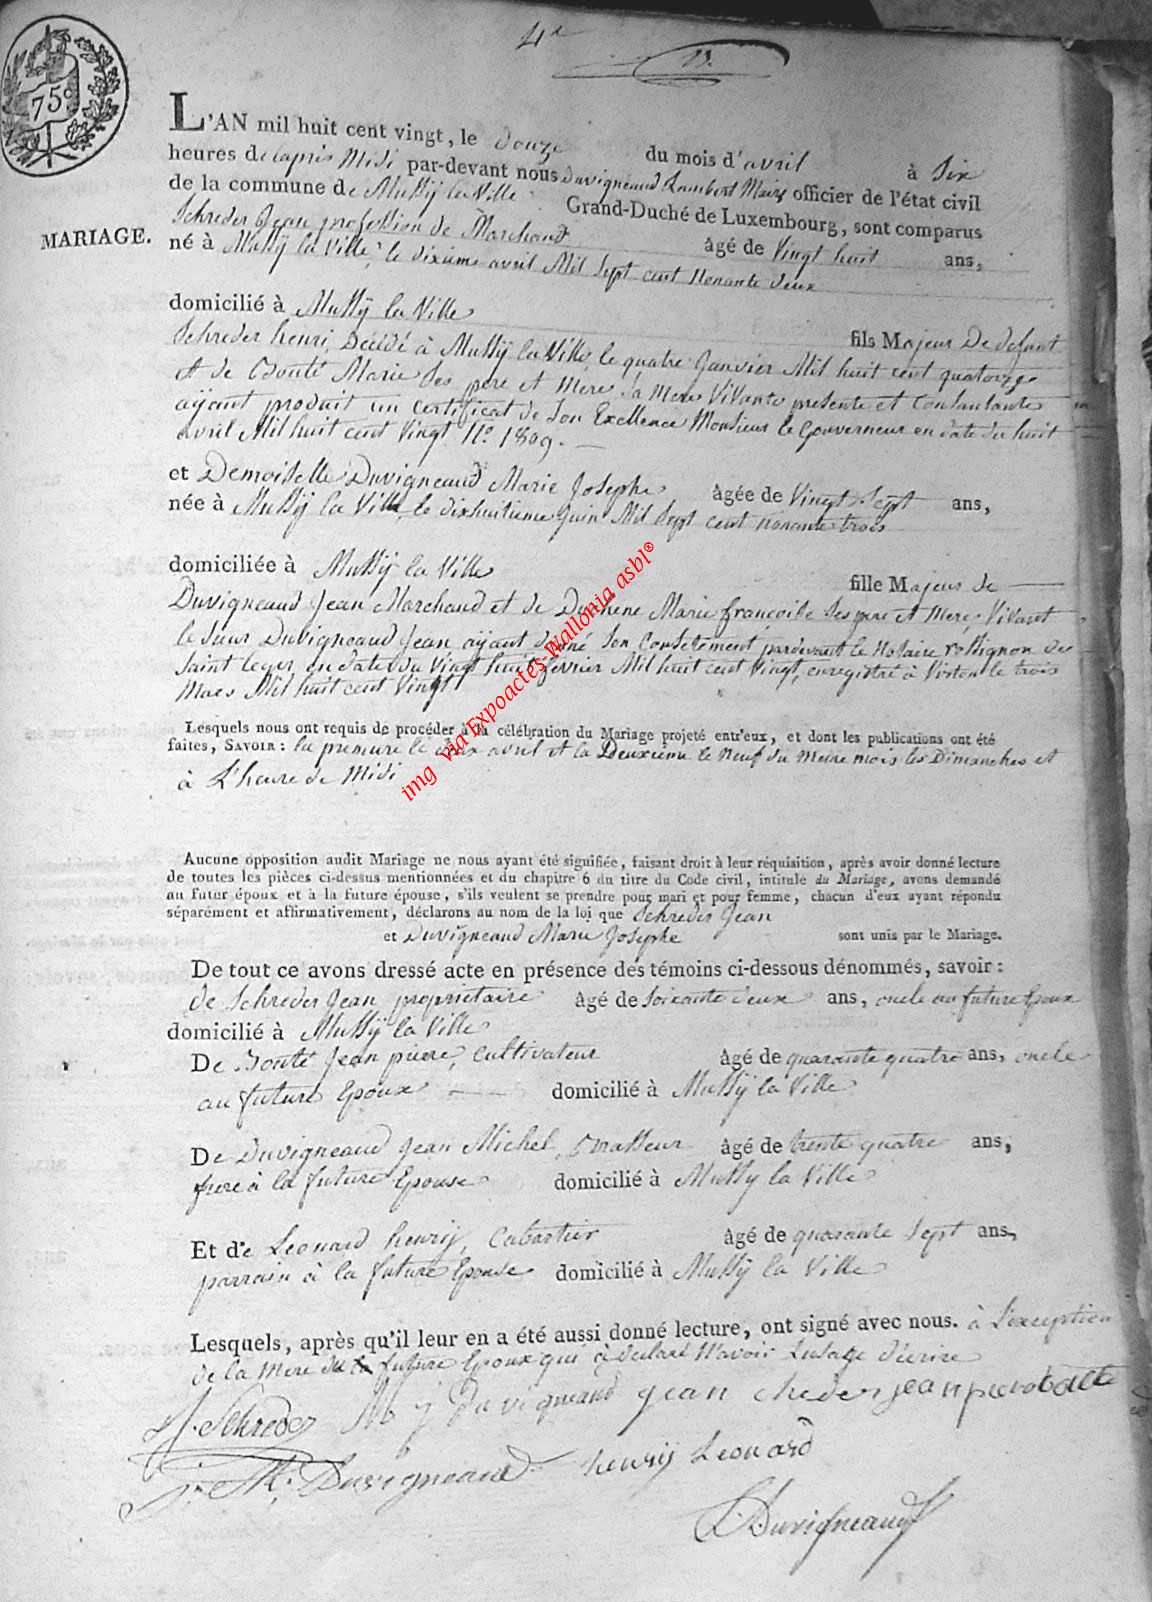 4e
13.
75c
L'AN mil huit cent vingt, le douze du mois d'avril à Six
heures de lapris Midi par-devant nous Duvigneaud Lambert Maire officier de l'état civil
de la commune de Mussÿ la Ville Grand-Duché de Luxembourg, sont comparus
Schreder Jean profession de Marchand âgé de Vingt huit ans,
MARIAGE.
né à Mussÿ la Ville, le dixieme avril Mil Sept cent Nonante deux
domicilié à Mussÿ la Ville
fils Majeur De defunt
Schreder henri, Décédé à Mussÿ la Ville, le quatre Janvier Mil huit cent quatorze
et de Bonté Marie Ses pere et Mere, la Mere Vivante presente et Consentante
aÿant produit un certificat de Son Excellence Monsieur le Gouverneur en date du huit
avril Mil huit cent Vingt No 1809.
et Demoiselle Duvigneaud Marie Josephe âgée de Vingt Sept ans,
née à Mussÿ la Ville, le dixhuitieme Juin Mil Sept cent nonante trois
domiciliée à Mussÿ la Ville
fille Majeur de
Duvigneaud Jean Marchand et de Duchene Marie francoise Ses pere et Mere, Vivant
le Sieur Duvigneaud Jean aÿant donné Son Consetement pardevant le Notaire rossignon de
Saint leger en date du Vingt huit fevrier Mil huit cent Vingt, enregistré à Virton le trois
Mars Mil huit cent Vingt
Lesquels nous ont requis de procéder à la célébration du Mariage projeté entr'eux, et dont les publications ont été
faites, SAVOIR : la premiere le deux avril et la Deuxieme le Neuf du Meme mois les Dimanches et
à L'heure de Midi
Aucune opposition audit Mariage ne nous ayant été signifiée, faisant droit à leur réquisition, après avoir donné lecture
de toutes les pièces ci-dessus mentionnées et du chapitre 6 du titre du Code civil, intitulé du Mariage, avons demandé
au futur époux et à la future épouse, s'ils veulent se prendre pour mari et pour femme, chacun d'eux ayant répondu
séparément et affirmativement, déclarons au nom de la loi que Schreder Jean
et Duvigneaud Marie Josephe sont unis par le Mariage.
De tout ce avons dressé acte en présence des témoins ci-dessous dénommés, savoir :
de Schreder Jean proprietaire âgé de Soixante deux ans, oncle au future Epoux
domicilié à Mussÿ la Ville
De Bonté Jean pierre, Cultivateur âgé de quarante quatre ans, oncle
au future Epoux domicilié à Mussÿ la Ville
De Duvigneaud Jean Michel, Brasseur âgé de trente quatre ans,
frere à la future Epouse domicilié à Mussy la Ville
Et de Leonard henrÿ, Cabartier âgé de quarante Sept ans,
parrain à la future Epouse domicilié à Mussÿ la Ville
Lesquels, après qu'il leur en a été aussi donné lecture, ont signé avec nous. à L'exception
de la Mere du future Epoux qui à declaré N'avoir Lusage d'écrire
J. Schreder M j Duvigneaud jean chreder jean pierobonte
J. M. Duvigneaud henrÿ Leonard
L. Duvigneaud
img via Expoactes-Wallonia asbl®